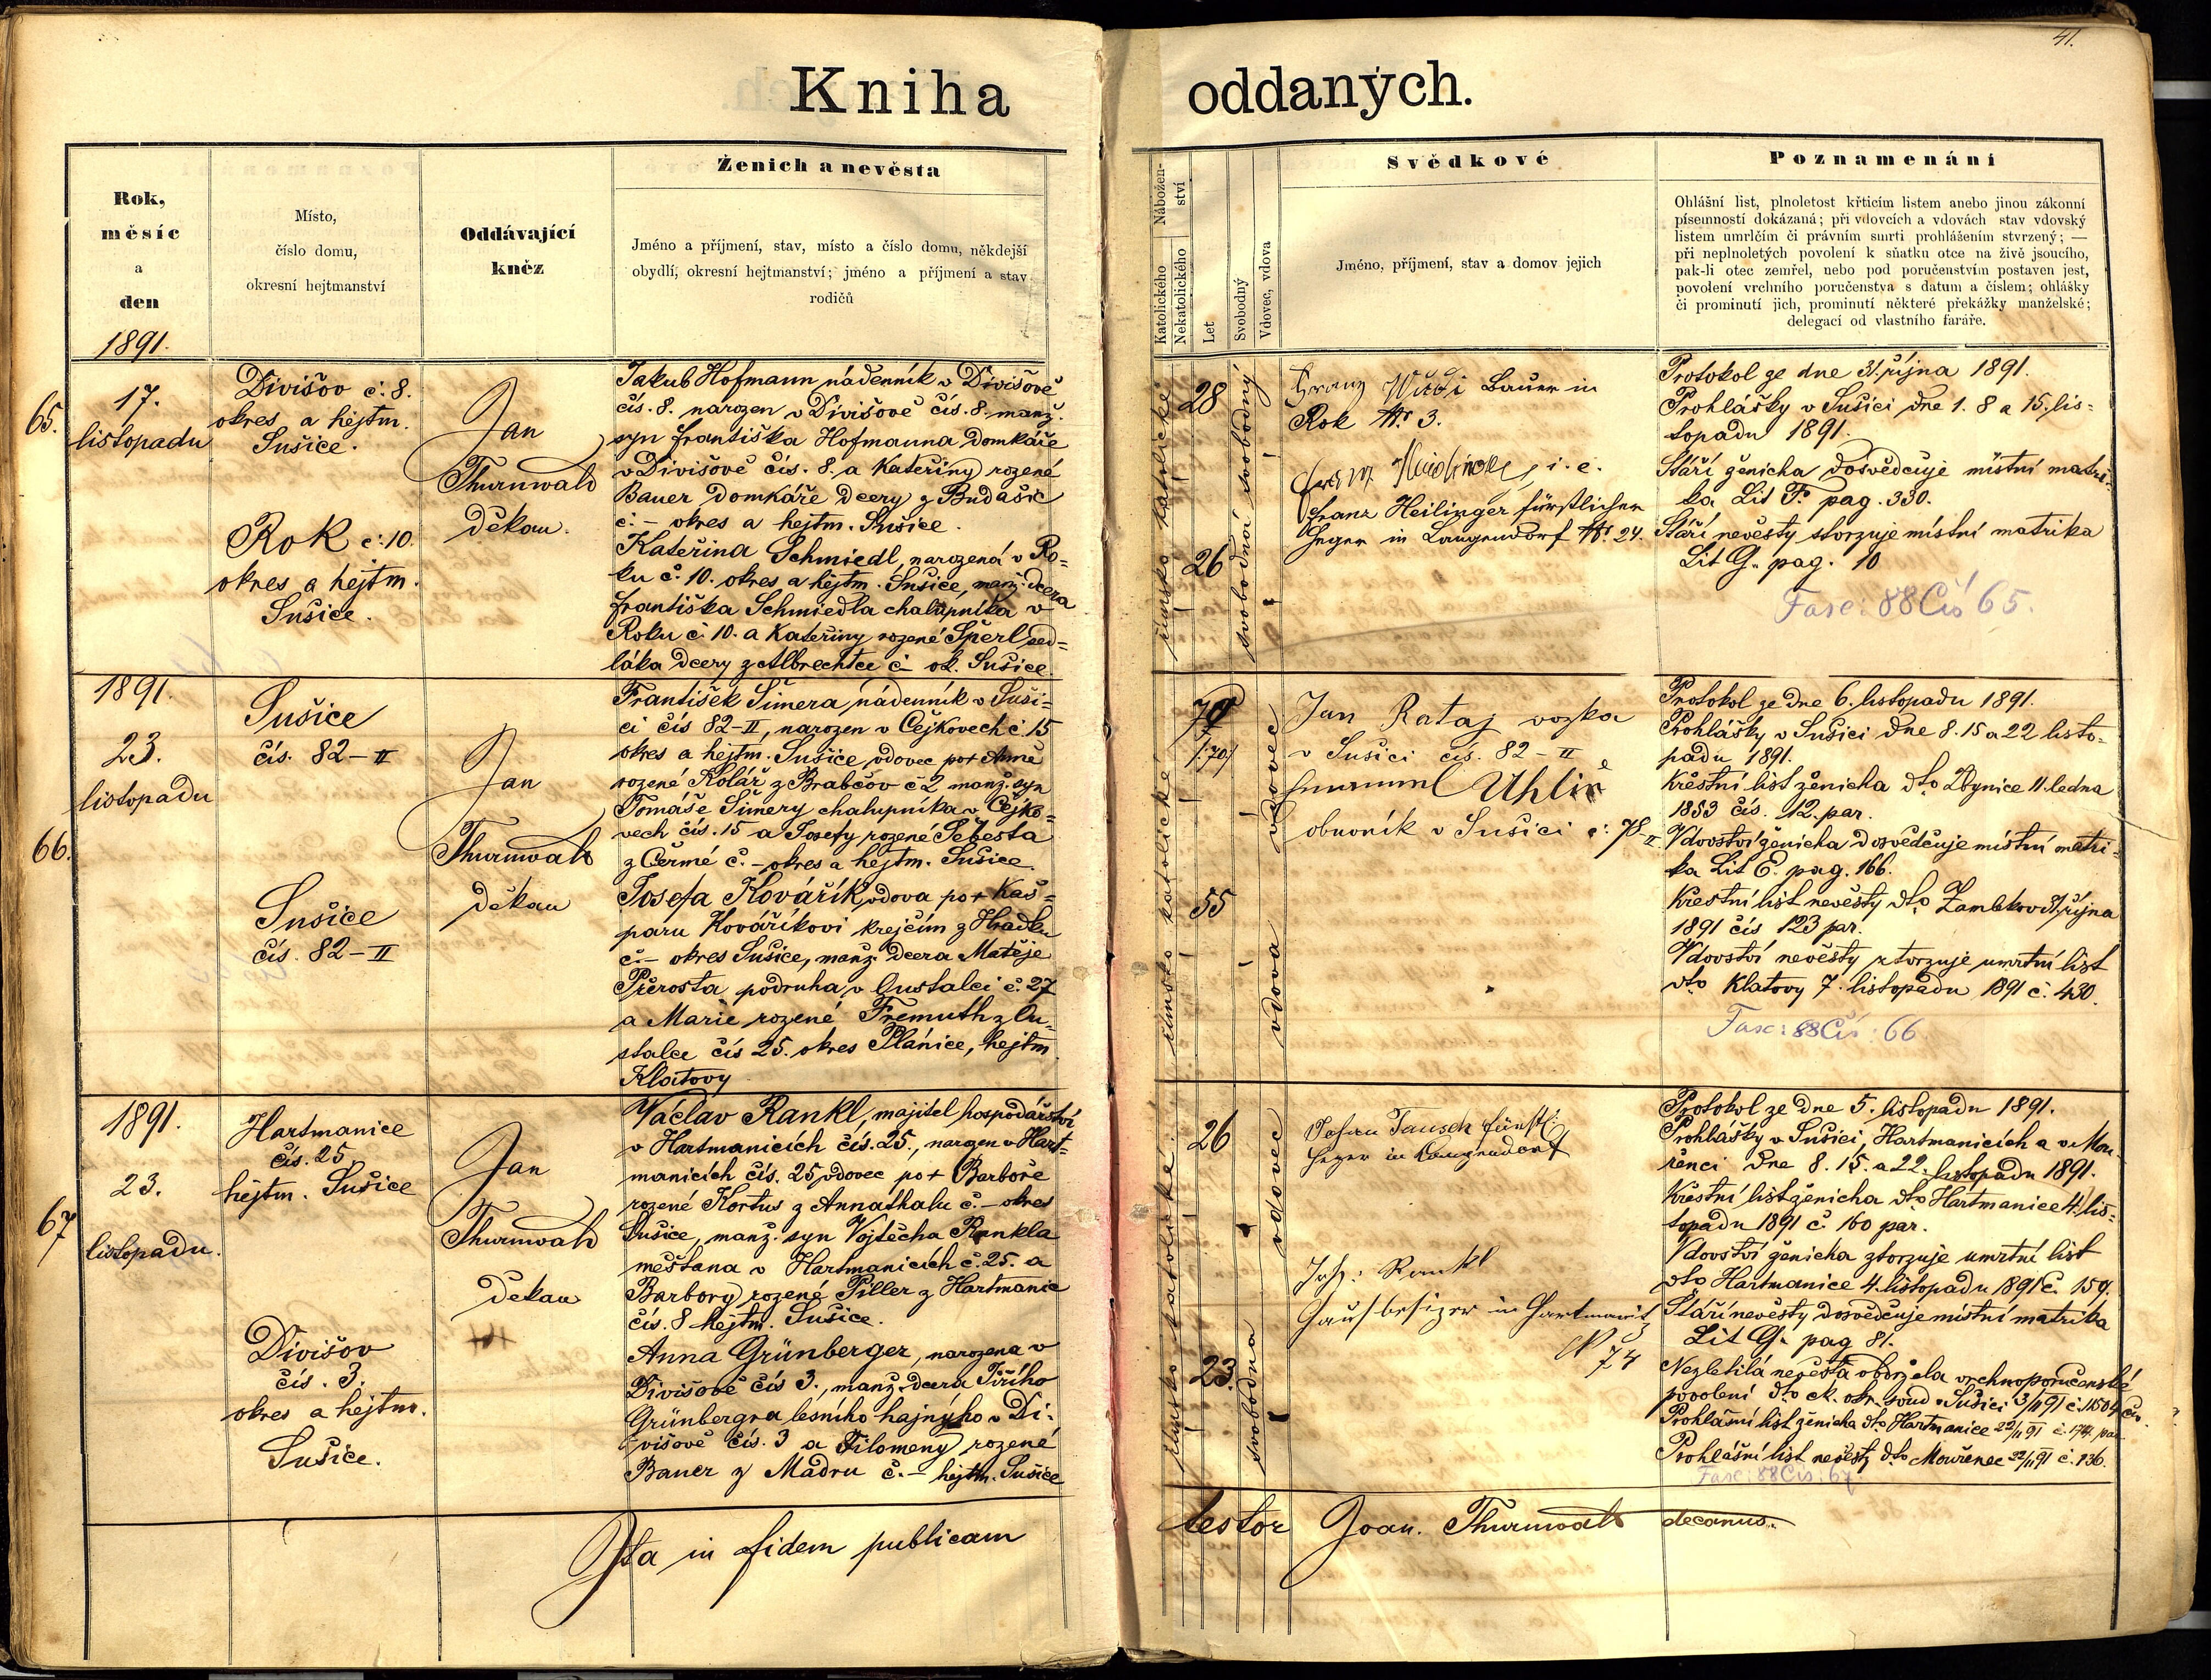 41.
Kniha oddaných.
Rok,
měsíc
a
den
1891.
Místo,
číslo domu,
okresní hejtmanství
Oddávající
kněz
Ženich a nevěsta
Jméno a příjmení, stav, místo a číslo domu, někdejší
obydlí, okresní hejtmanství; jméno a příjmení a stav
rodičů
Nábožen-
ství
Katolického
Nekatolického
Let
Svobodný
Vdovec, vdova
Svědkové
Jméno, příjmení, stav a domov jejich
Poznamenání
Ohlášní list, plnoletost křticím listem anebo jinou zákonní
písemností dokázaná; při vdovcích a vdovách stav vdovský
listem umrlčím či právním smrti prohlášením stvrzený; —
při neplnoletých povolení k sňatku otce na živě jsoucího,
pak-li otec zemřel, nebo pod poručenstvím postaven jest,
povolení vrchního poručenstva s datum a číslem; ohlášky
či prominutí jich, prominutí některé překážky manželské;
delegací od vlastního faráře.
65.
17.
listopadu
Divišov č: 8.
okres a hejtm.
Sušice.
Rok č: 10.
okres a hejtm.
Sušice.
Jan
Thurnwald
děkan.
Jakub Hofmann nádenník v Divišově
čís. 8. narozen v Divišově čís. 8. manž.
syn Františka Hofmanna domkáře
v Divišově čís. 8. a Kateřiny rozené
Bauer domkáře dcery z Budašic
č. – okres a hejtm. Sušice.
Kateřina Schmiedl, narozená v Ro-
ku č. 10. okres a hejtm. Sušice, manž. dcera
Františka Schmiedla chalupníka v
Roku č. 10. a Kateřiny rozené Šperl sed-
láka dcery z Albrechtce č – ok. Sušice
římsko katolické
28
26
svobodný
svobodná
Franz Bauer in
Rok № 3.
i. e.
Franz Heilinger fürstlicher
Heger in Langendorf № 24.
Protokol ze dne 31. října 1891.
Prohlášky v Sušici dne 1. 8 a 15. lis-
topadu 1891.
Stáří ženicha dosvědčuje místní matri-
ka Lit F. pag. 330.
Stáří nevěsty stvrzuje místní matrika
Lit G. pag. 10
Fasc: 88 Čís 65.
66.
1891.
23.
listopadu
Sušice
čís. 82 – II
Sušice
čís. 82 – II
Jan
Thurnwald
děkan
František Šimera, nádenník v Suši-
ci čís 82 – II, narozen v Čejkovech č. 15
okres a hejtm. Sušice, vdovec po + Anně
rozené Kolář z Brabčov č 2 manž. syn
Tomáše Šimery chalupníka v Čejko-
vech čís. 15 a Josefy rozené Šebesta
z Čermé č. – okres a hejtm. Sušice.
Josefa Kovářík vdova po + Kaš-
paru Kováříkovi krejčím z Hrádku
č. – okres Sušice, manž. dcera Matěje
Přerosta podruha v Oustalci č. 27
a Marie rozené Fremuth z Ou-
stalce čís 25. okres Plánice, hejtm
Klatovy
římsko katolické
70
/:70:/
55
vdovec
vdova
Jan Rataj vozka
v Sušici čís. 82 – II
Uhlíř
obuvník v Sušici č: 78–II.
Protokol ze dne 6. listopadu 1891.
Prohlášky v Sušici dne 8. 15 a 22 listo-
padu 1891.
Křestní list ženicha dto Zbynice 11 ledna
1853 čís. 12. par.
Vdovství ženicha dosvědčuje místní matri-
ka Lit E. pag. 166.
Křestní list nevěsty dto října
1891 čís 123 par.
Vdovství nevěsty stvrzuje umrtní list
dto Klatovy 7. listopadu 1891 č. 430.
Fasc: 88 Čís: 66
67
1891.
23.
listopadu.
Hartmanice
čís. 25.
hejtm. Sušice
Divišov
čís. 3.
okres a hejtm.
Sušice.
Jan
Thurnwald
děkan
Václav Rankl, majitel hospodářství
v Hartmanicích čís. 25., narozen v Hart-
manicích čís. 25, vdovec po + Barboře
rozené Kortus z Annathalu č. – okres
Sušice, manž. syn Vojtěcha Rankla
měšťana v Hartmanicích č. 25. a
Barbory rozené Piller z Hartmanic
čís. 8 hejtm. Sušice.
Anna Grünberger, narozena v
Divišově čís 3., manž. dcera Jiřího
Grünbergra lesního hajného v Di-
višově čís. 3 a Filomeny rozené
Bauer z Mádru č. – hejtm. Sušice
římsko katolické
26
23.
vdovec
svobodna
Johan Tausch fürstl:
Heger in Langendorf
Joh: Rankl
Hausbesizer in Hartmanitz
N 74
Protokol ze dne 5. listopadu 1891.
Prohlášky v Sušici, Hartmanicích a v Mou-
řenci dne 8. 15. a 22. listopadu 1891.
Křestní list ženicha dto Hartmanice 4. lis-
topadu 1891 č. 160 par.
Vdovství ženicha stvrzuje umrtní list
dto Hartmanice 4. listopadu 1891 č. 159.
Stáří nevěsty dosvědčuje místní matrika
Lit G. pag 81.
Nezletilá nevěsta obdržela vrchnoporučenské
povolení dto ck. okr. soud v Sušici 3/11 91 č. 11504 civ.
Prohlášní list ženicha dto Hartmanice 22/11 91 č. 174. par.
Prohlášní list nevěsty dto Mouřenec 22/11 91 č. 136.
Fasc: 88 Čís: 67
Ita in fidem publicam testor Joan. Thurnwald decanus.